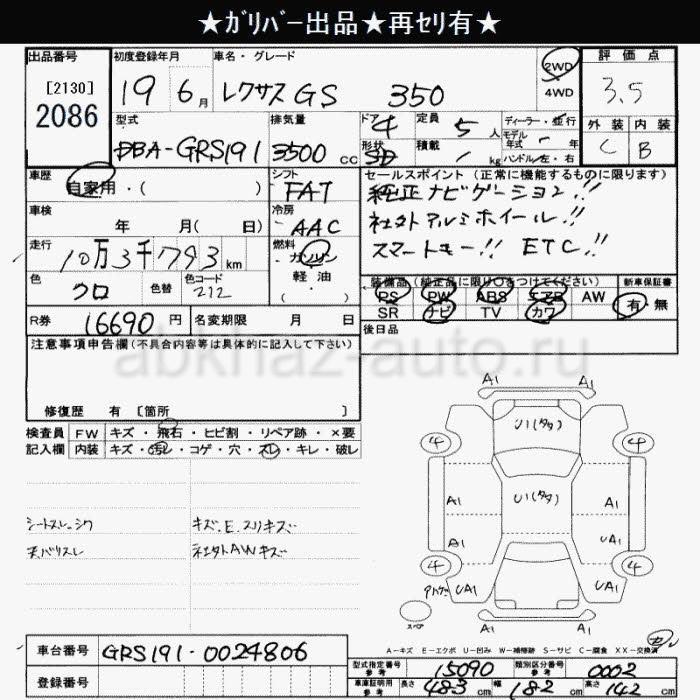 ★ｶﾞﾘﾊﾞｰ出品★再ｾﾘ有★
出品番号
[2130]
2086
初度登録年月
19 6月
車名・グレード
レクサスGS 350
2WD
4WD
評価点
3.5
外装 内装
C B
型式
DBA-GRS191
排気量
3500cc
ドア 4
形状 SD
定員 5人
積載 kg
ディーラー・並行
モデル年式 - 年
ハンドル/左・右
車歴
自家用・( )
シフト
FAT
セールスポイント (正常に機能するものに限ります)
純正ナビゲーション!!
社外アルミホイール!!
スマートキー!! ETC!!
車検
年 月( 日)
冷房
AAC
走行
10万3千793km
燃料
ガソリン
軽油
( )
色
クロ
色替
色コード
212
装備品(純正品に限り○をつけてください)
PS PW ABS エアB AW
SR ナビ TV カワ
新車保証書
有 無
R券 16690円
名変期限 月 日
後日品
注意事項申告欄(不具合内容等は具体的に記入して下さい)
abkhaz-auto.ru
修復歴 有 [箇所 ]
検査員 FW キズ・飛石・ヒビ割・リペア跡・×要
記入欄 内装 キズ・汚レ・コゲ・穴・スレ・キレ・破レ
シートスレ、シワ
天バリスレ
キズ.E.スリキズ
社外AWキズ
A1 A1
U1(タタ)
4 4
U1(タタ)
A1 A1
A1 UA1
4 4
UA1 UA1
A1 A1
スペア
A-キズ E-エクボ U-凹み W-補修跡 S-サビ C-腐食 XX-交換済
車台番号 GRS191-0024806
登録番号
型式指定番号 参考 15090
類別区分番号 参考 0002
車庫証明用 参考 長さ 483cm 幅 182cm 高さ 142cm